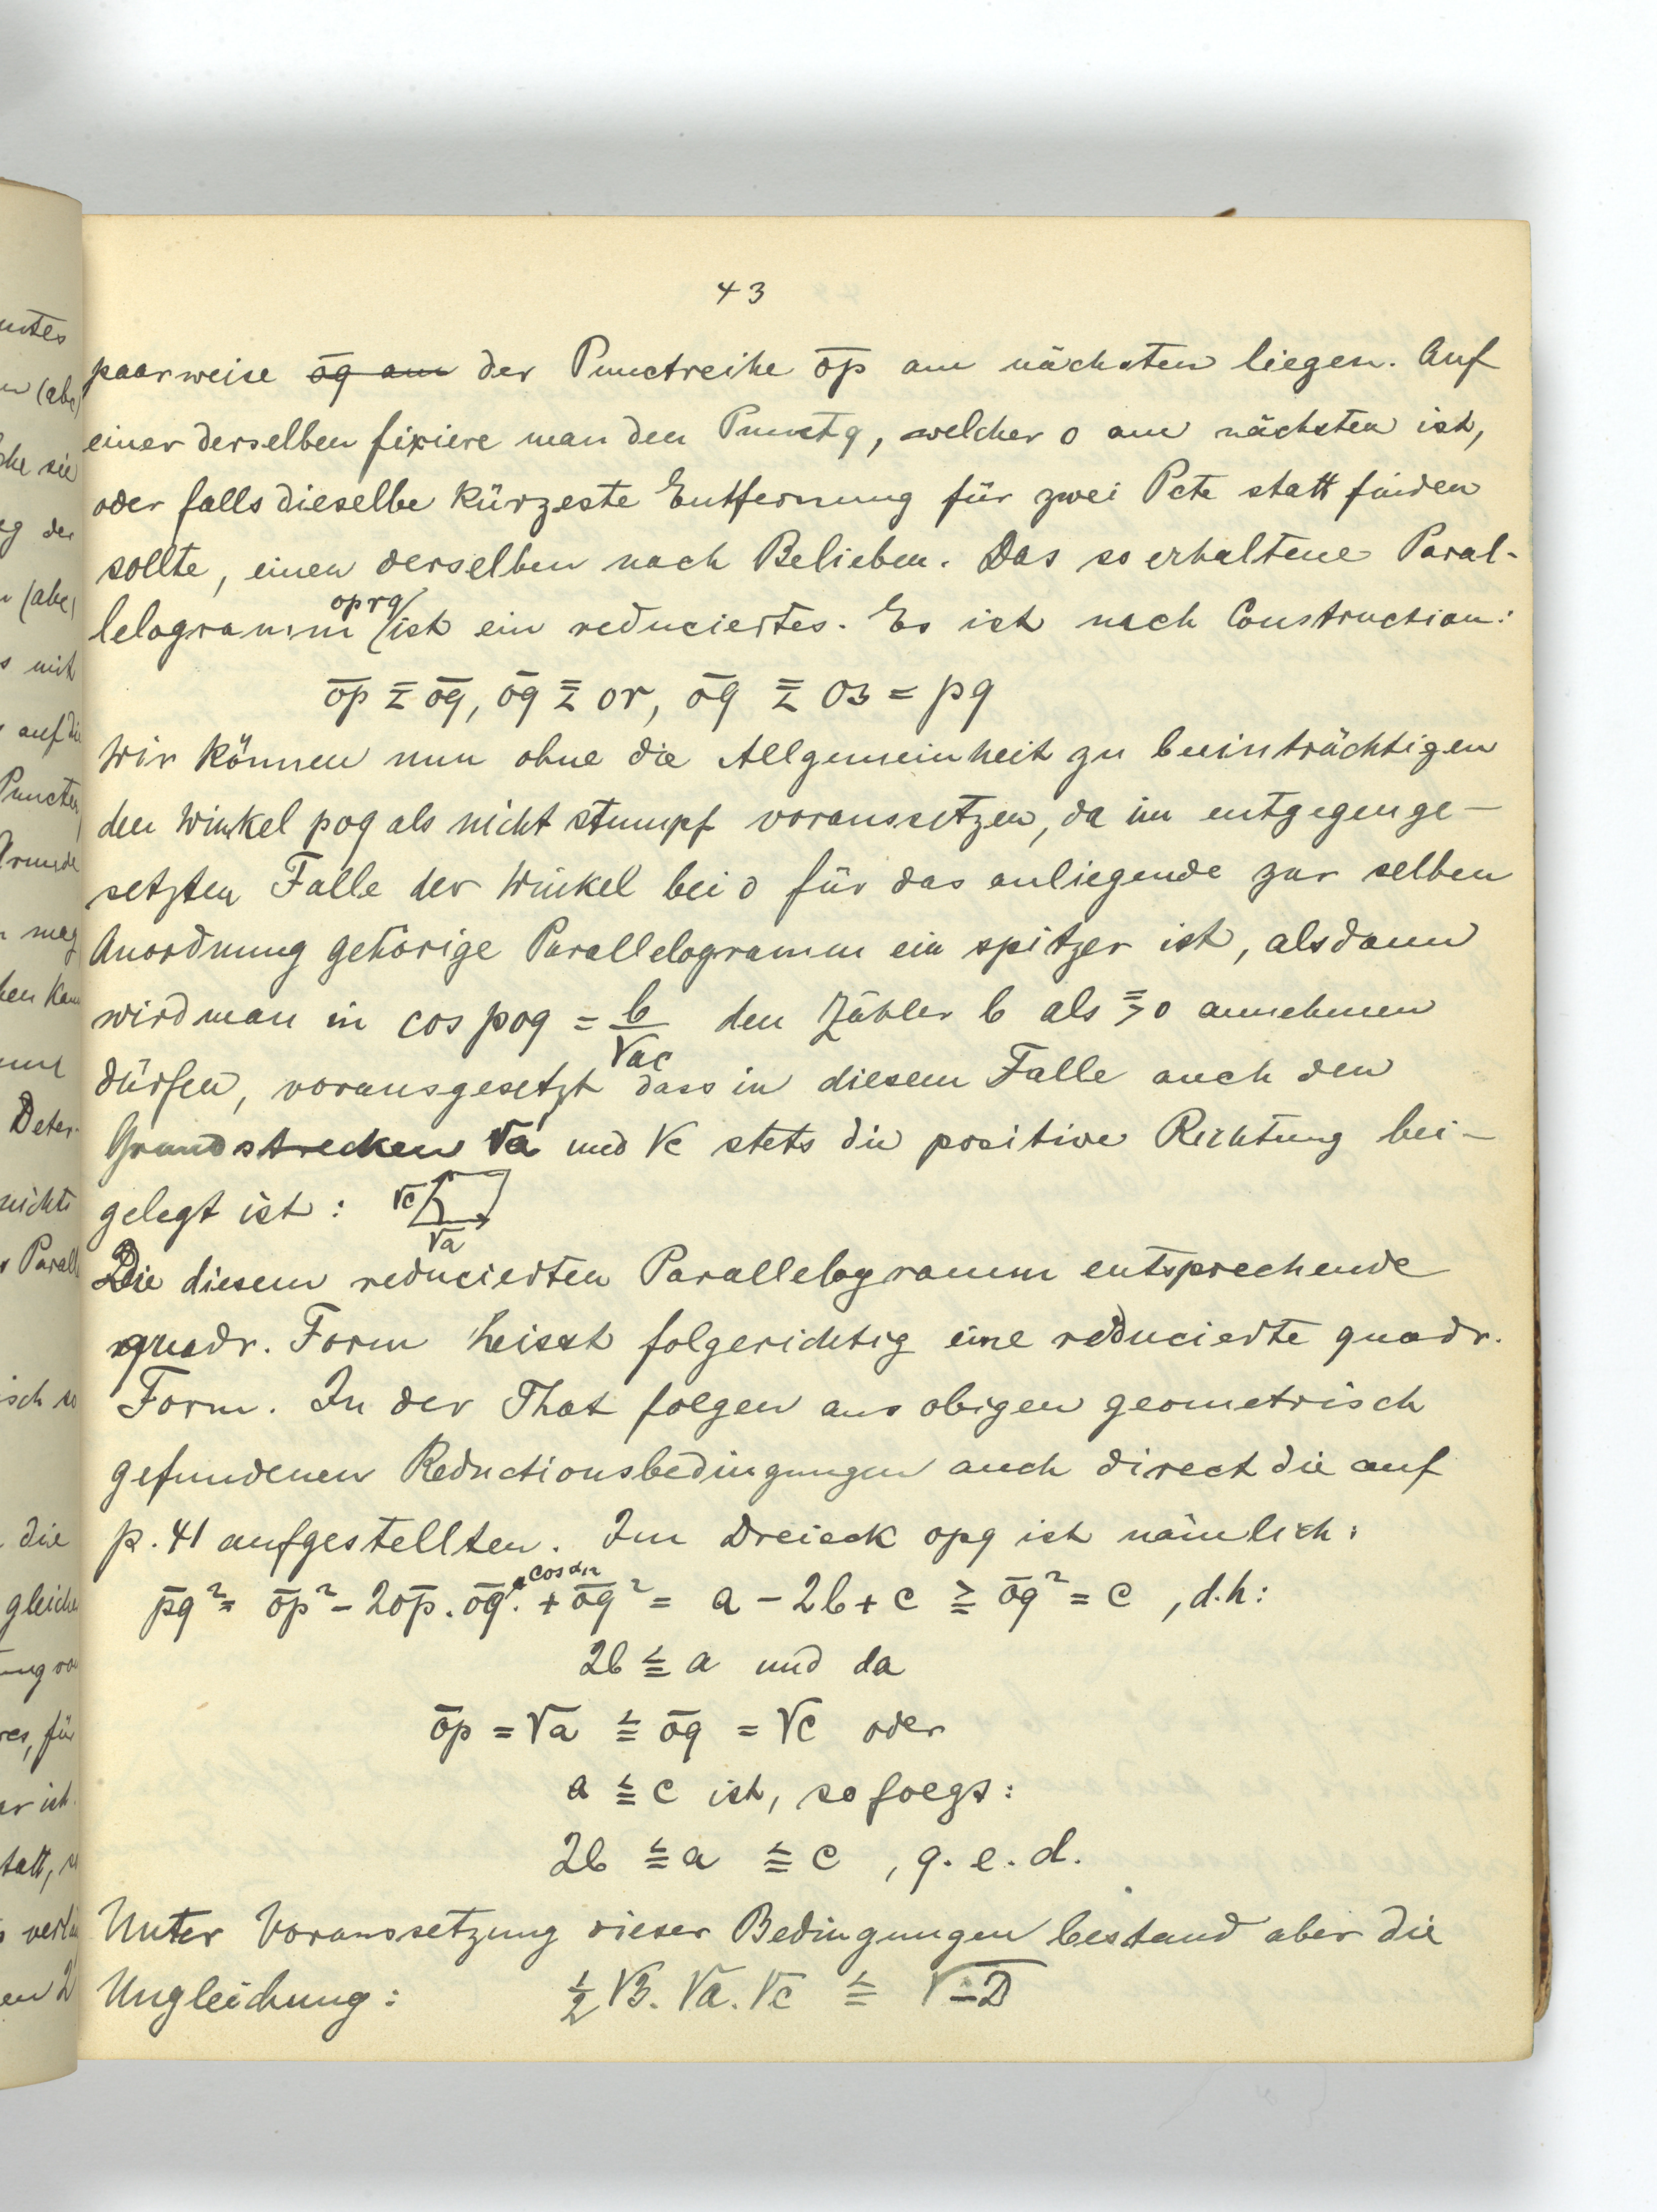 43
paarweise o̅q̅ am der Punctreihe o̅p̅ am nächsten liegen. Auf
einer derselben fixiere man den Punct q, welcher o am nächsten ist,
oder falls dieselbe kürzeste Entfernung für zwei Pcte statt finden
sollte, einen derselben nach Belieben. Das so erhaltene Paral-
oprq
lelogramm ist ein reduciertes. Es ist nach Construction:
o̅p̅ ≦ o̅q̅, o̅q̅ ≦ or, o̅q̅ ≦ os = pq
Wir können nun ohne die Allgemeinheit zu beeinträchtigen
den Winkel poq als nicht stumpf voraussetzen, da im entgegenge-
setzten Falle der Winkel bei o für das anliegende zur selben
Anordnung gehörige Parallelogramm ein spitzer ist, alsdann
wird man in cos poq = b/√ac den Zähler b als ≧ 0 annehmen
dürfen, vorausgesetzt dass in diesem Falle auch den
Grundstrecken √a und √c stets die positive Richtung bei-
gelegt ist: √c √a
Die diesem reducierten Parallelogramm entsprechende
quadr. Form heisst folgerichtig eine reducierte quadr.
Form. In der That folgen aus obigen geometrisch
gefundenen Reductionsbedingungen auch direct die auf
p. 41 aufgestellten. Im Dreieck opq ist nämlich:
p̅q̅² = o̅p̅² - 2o̅p̅. o̅q̅. cos α₁₂ + o̅q̅² = a - 2b + c ≧ o̅q̅² = c , d.h:
2b ≦ a und da
o̅p̅ = √a ≦ o̅q̅ = √c oder
a ≦ c ist, so folgt:
2b ≦ a ≦ c , q. e. d.
Unter Voraussetzung dieser Bedingungen bestand aber die
Ungleichung: ½ √3. √a. √c ≦ √-D